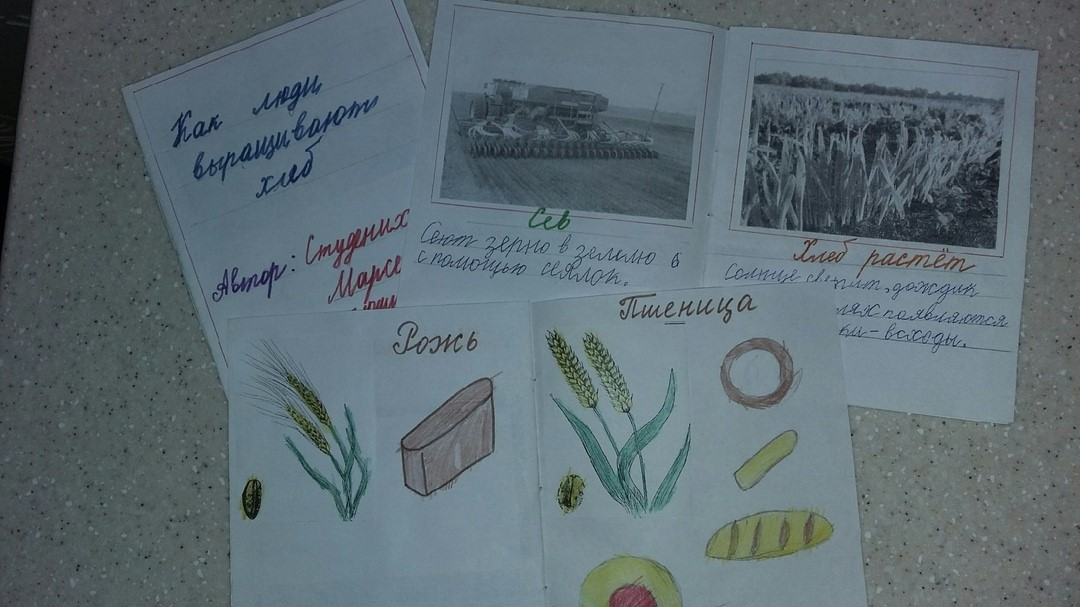 Как люди
выращивают
хлеб
Автор: Студених
Марсе
Сев
Сеют зерно в землю
с помощью сеялок.
Хлеб растёт
Солнце светит, дождик
лях появляются
ки - всходы.
Рожь
Пшеница